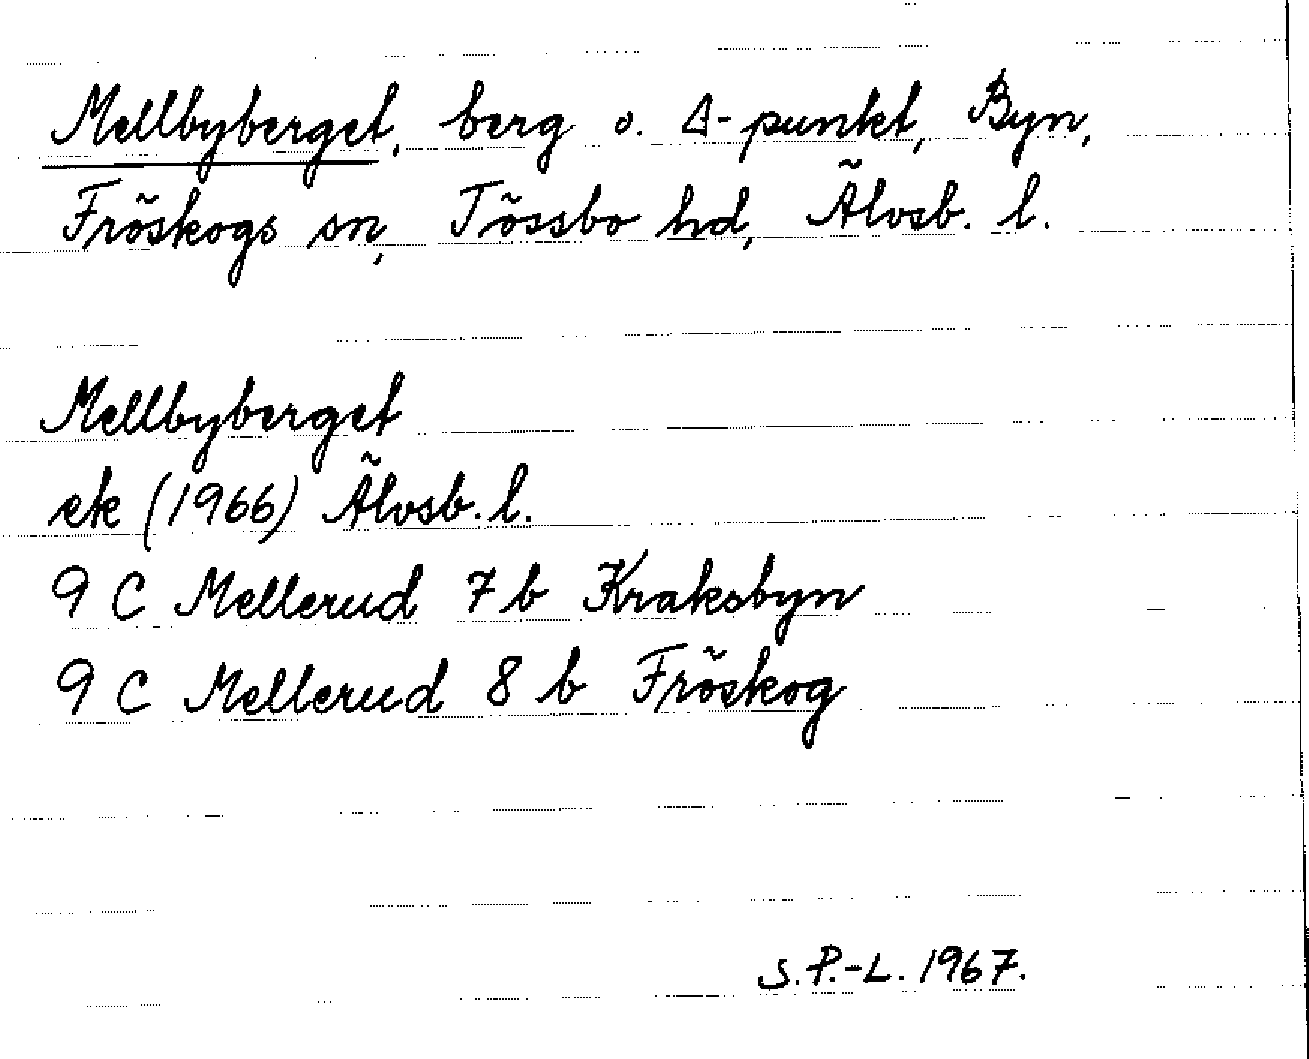 Mellbyberget, berg o. Δ-punkt, Byn,
Fröskogs sn, Tössbo hd, Älvsb. l.
Mellbyberget
ek (1966) Älvsb. l.
9 C Mellerud 7 b Kraksbyn
9 C Mellerud 8 b Fröskog
S.P.-L. 1967.